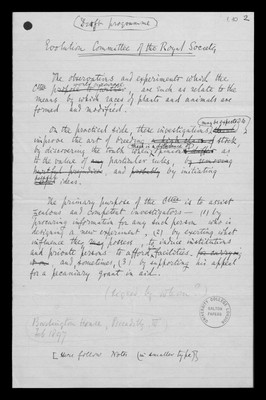 (Draft programme)
(1) 2
Evolution Committee of the Royal Society
The observations and experiments which the
Ctte promote, are such as relate to the
means by which races of plants and animals are
formed and modified.
On the practical side, these investigations may be expected to
improve the art of breeding stock,
by discovering the truth
to the value of any particular rules, by removing
and probably by initiating
ideas.
The primary purpose of the Ctte is to assist
zealous and competent investigators — (1) by
procuring information for any such person who is
designing a new experiment, (2) by exerting what
influence they possess, to induce institutions
and private persons to afford facilities
and sometimes, (3) by supporting his appeal
for a pecuniary grant in aid.
(Signed by whom?)
Burlington House, Piccadilly W
Feb 1897
[Here follow Notes (in smaller type)]
UNIVERSITY COLLEGE LONDON
GALTON
PAPERS